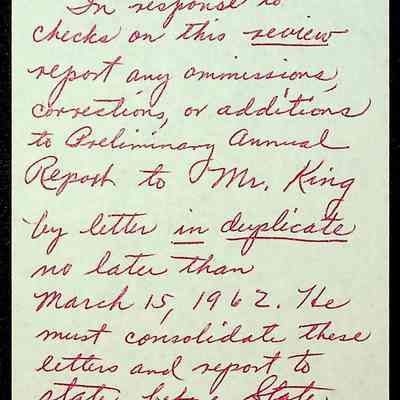 In response to
checks on this review
report any ommissions,
corrections, or additions
to Preliminary Annual
Report to Mr. King
by letter in duplicate
no later than
March 15, 1962. He
must consolidate these
letters and report to
state before State